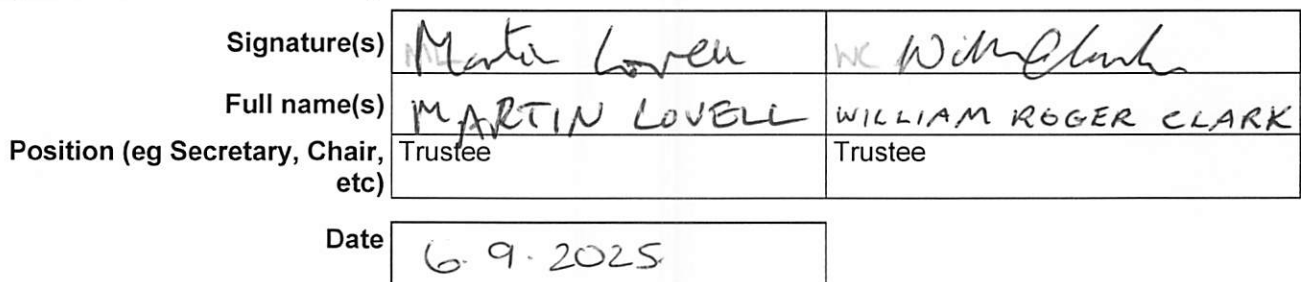 Signature(s) ML Martin Lovell WC Will Clark
Full name(s) MARTIN LOVELL WILLIAM ROGER CLARK
Position (eg Secretary, Chair, Trustee Trustee
etc)
Date 6.9.2025